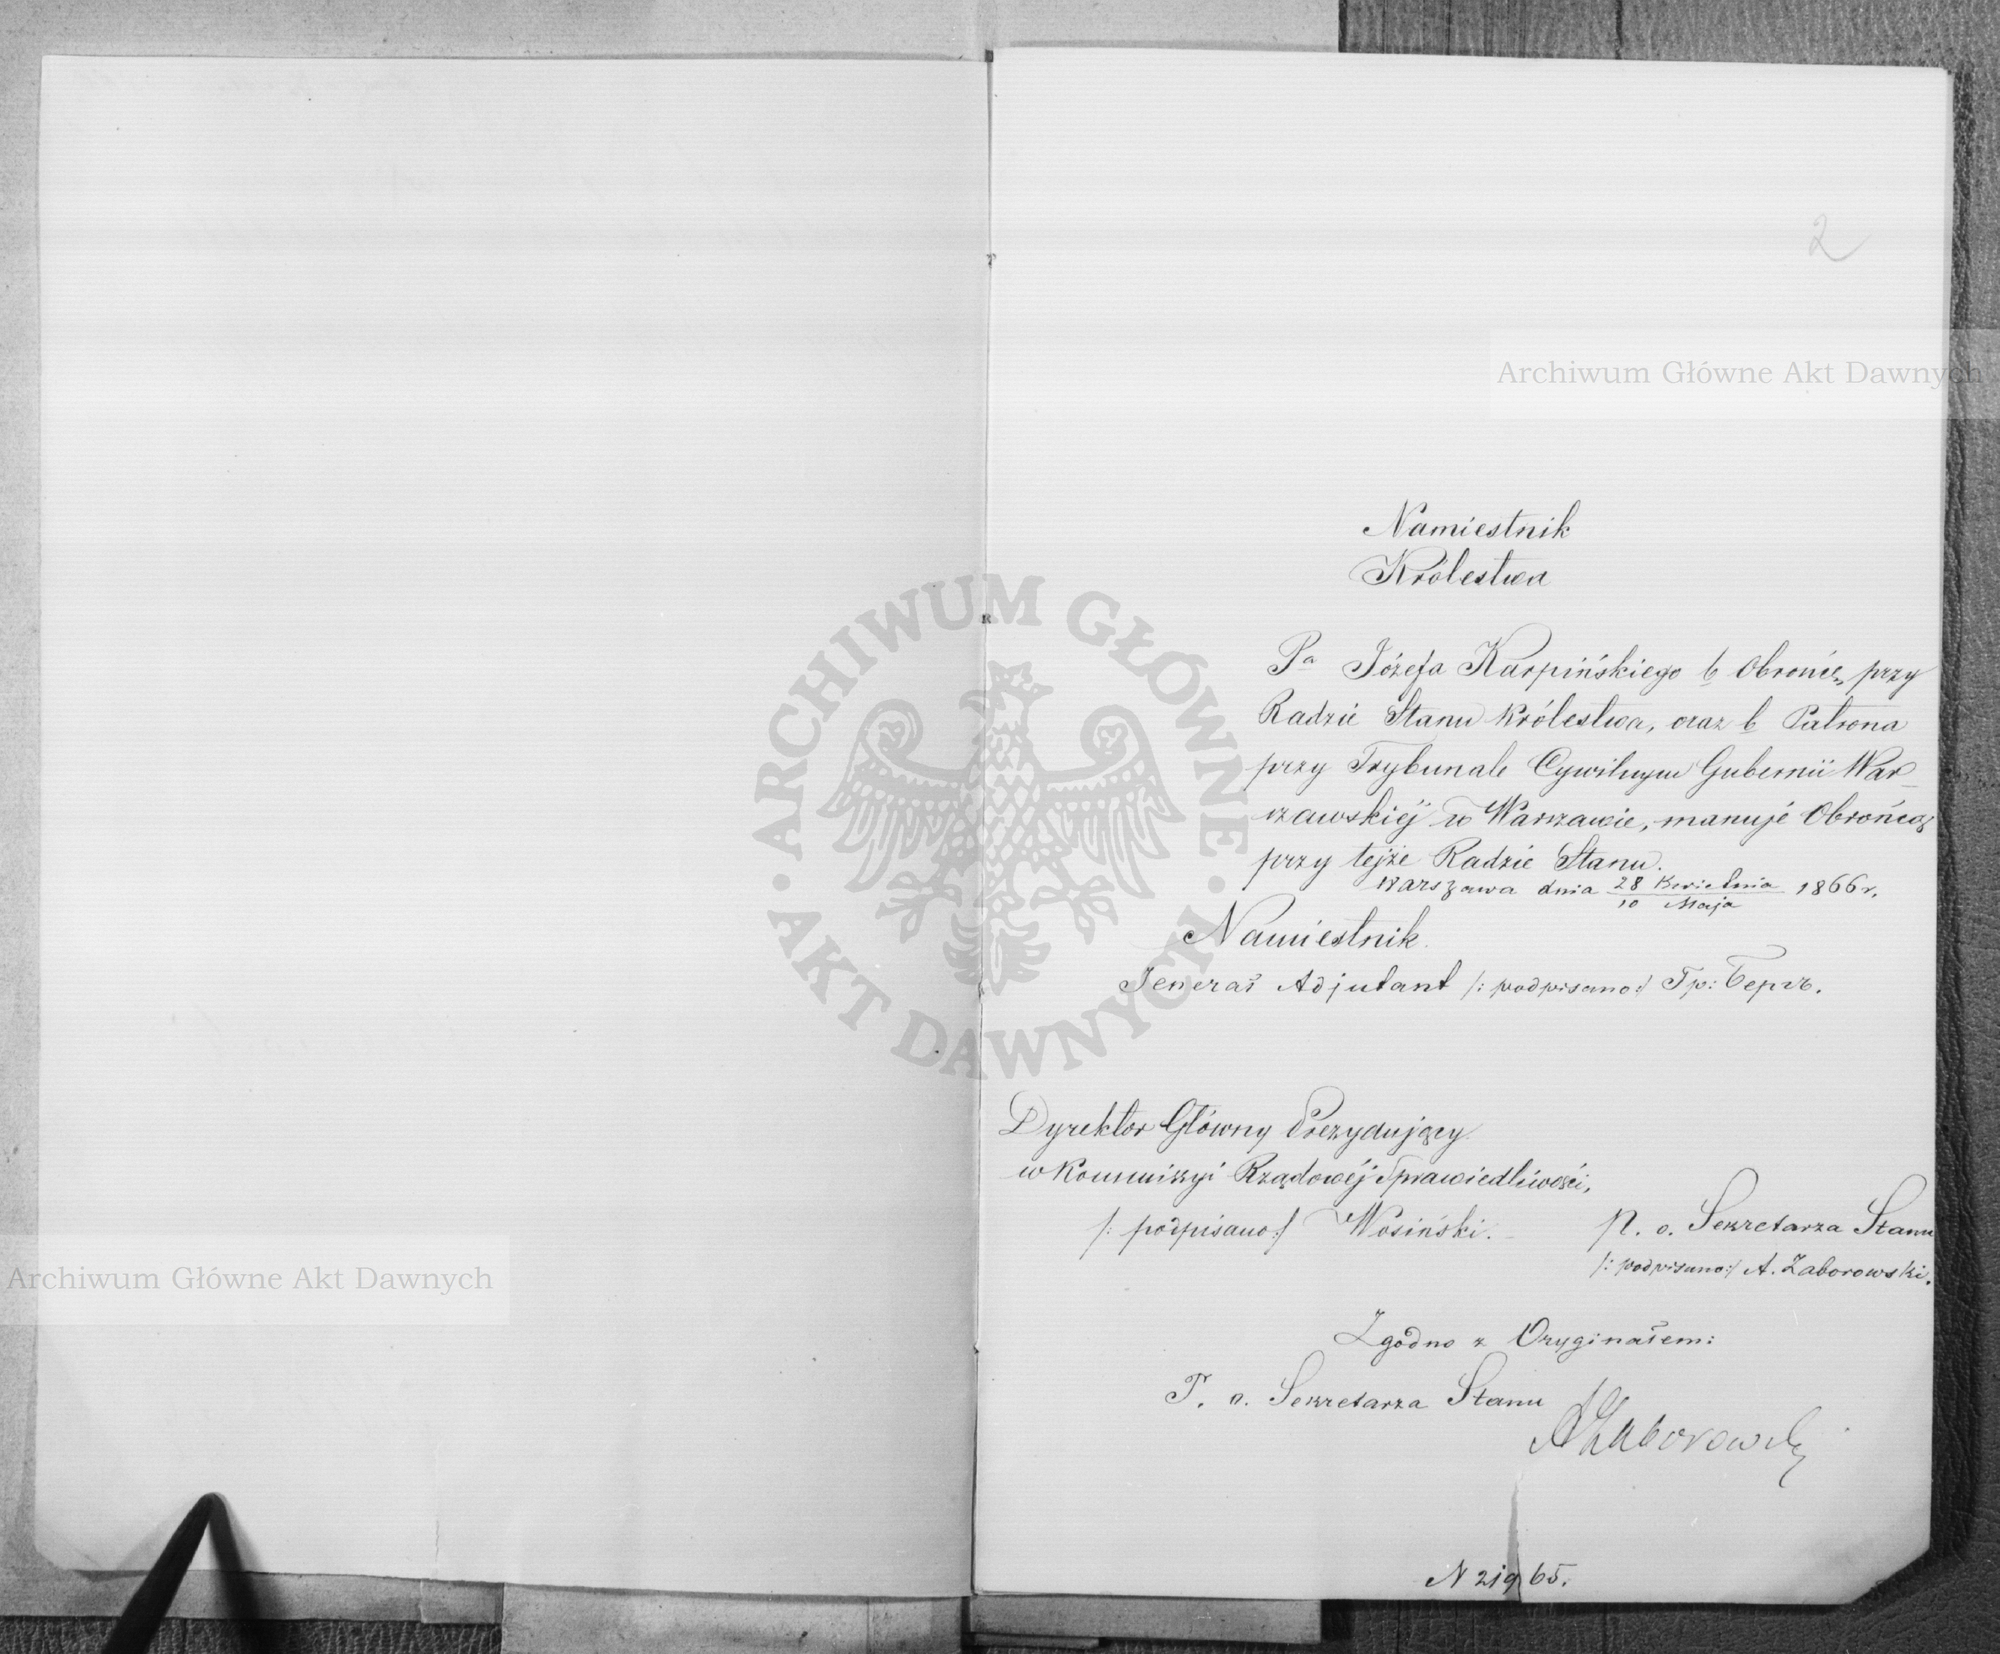 2
Archiwum Główne Akt Dawnych
Namiestnik
Królestwa
Pa Józefa Karpińskiego b Obrońcę przy
Radzie Stanu Królestwa, oraz b Patrona
przy Trybunale Cywilnym Gubernii War-
szawskiéj w Warszawie, mianuje Obrońcą
przy tejże Radzie Stanu.
Warszawa dnia 28 Kwietnia / 10 Maja 1866 r.
Namiestnik
Jenerał Adjutant /: podpisano :/ Гр: Бергъ.
Dyrektor Główny Prezydujący
w Kommissyi Rządowéj Sprawiedliwości,
/: podpisano :/ Wosiński.
p. o. Sekretarza Stanu
/: podpisano :/ A. Zaborowski.
Zgodno z Oryginałem:
P. o. Sekretarza Stanu
AZaborowski
N 21965.
ARCHIWUM GŁÓWNE · AKT DAWNYCH ·
Archiwum Główne Akt Dawnych